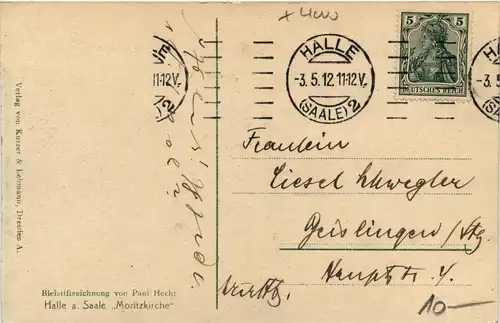 + 4000
HALLE
-3.5.12.11-12V.
(SAALE) 2
5 5
DEUTSCHES REICH
11-12V.
2
Verlag von Kunzer & Lehmann, Dresden A.
Fräulein
Liesel Schwegler
Geislingen / Stg.
Hauptstr. 4.
Württbg.
Bleistiftzeichnung von Paul Hecht
Halle a. Saale „Moritzkirche“
10—